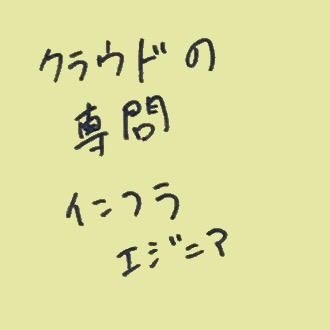 クラウドの
専門
インフラ
エジニア